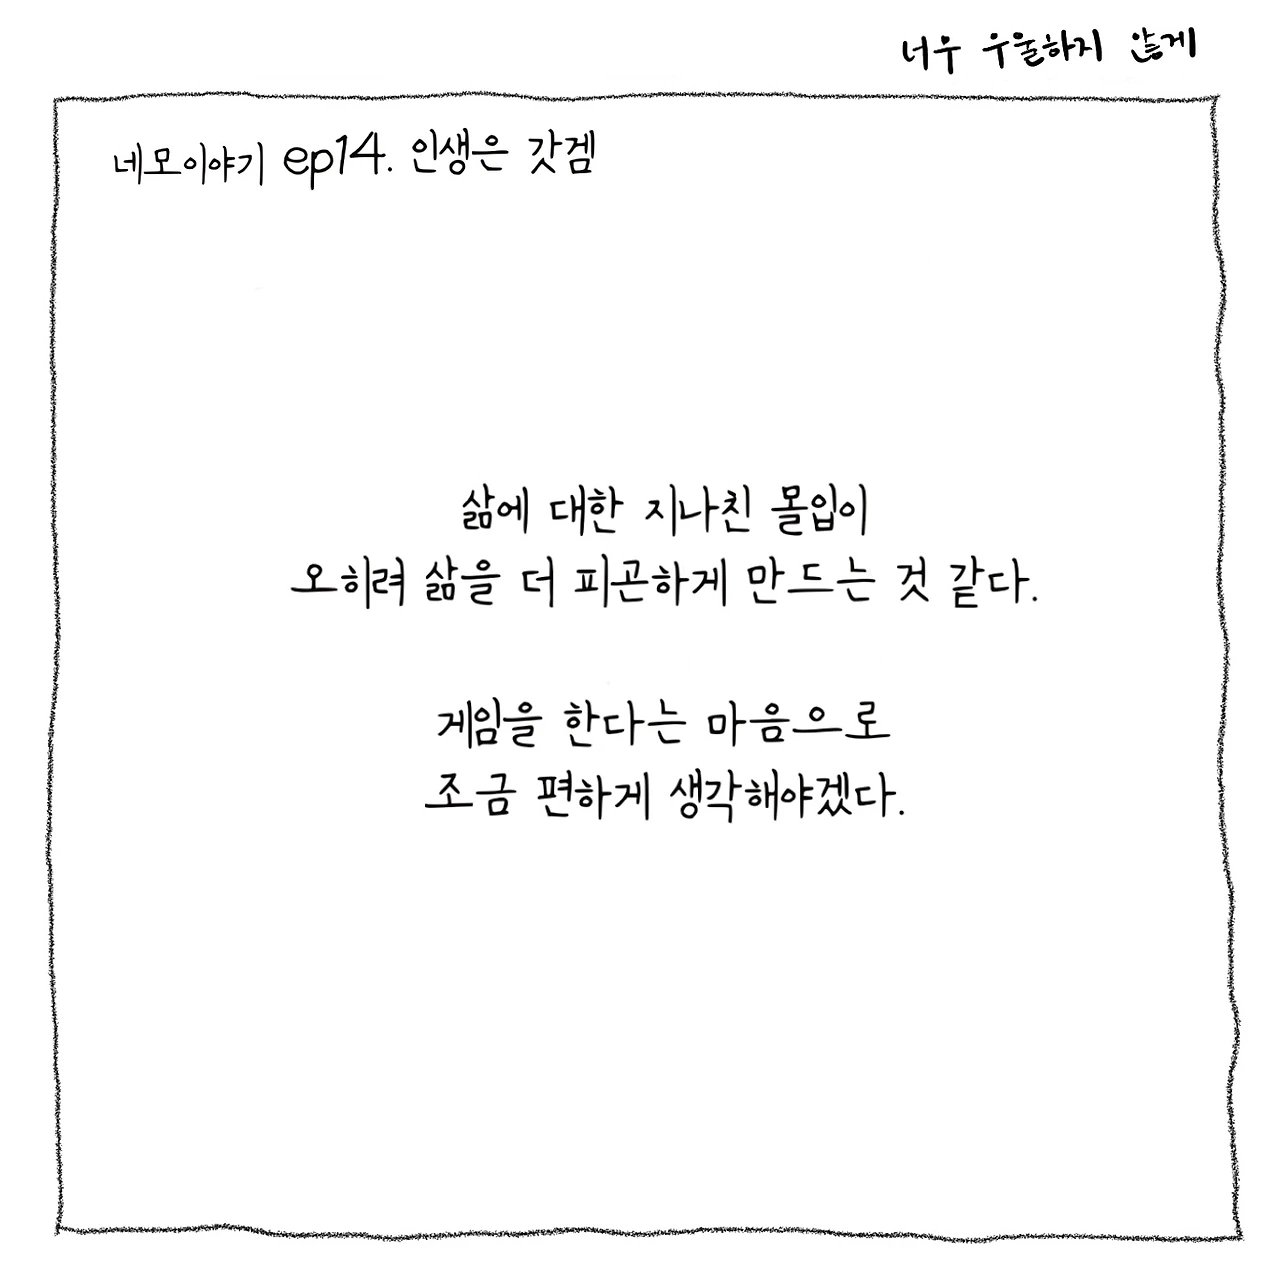 너우 우울하지 않게
네모이야기 ep14. 인생은 갓겜
삶에 대한 지나친 몰입이
오히려 삶을 더 피곤하게 만드는 것 같다.
게임을 한다는 마음으로
조금 편하게 생각해야겠다.